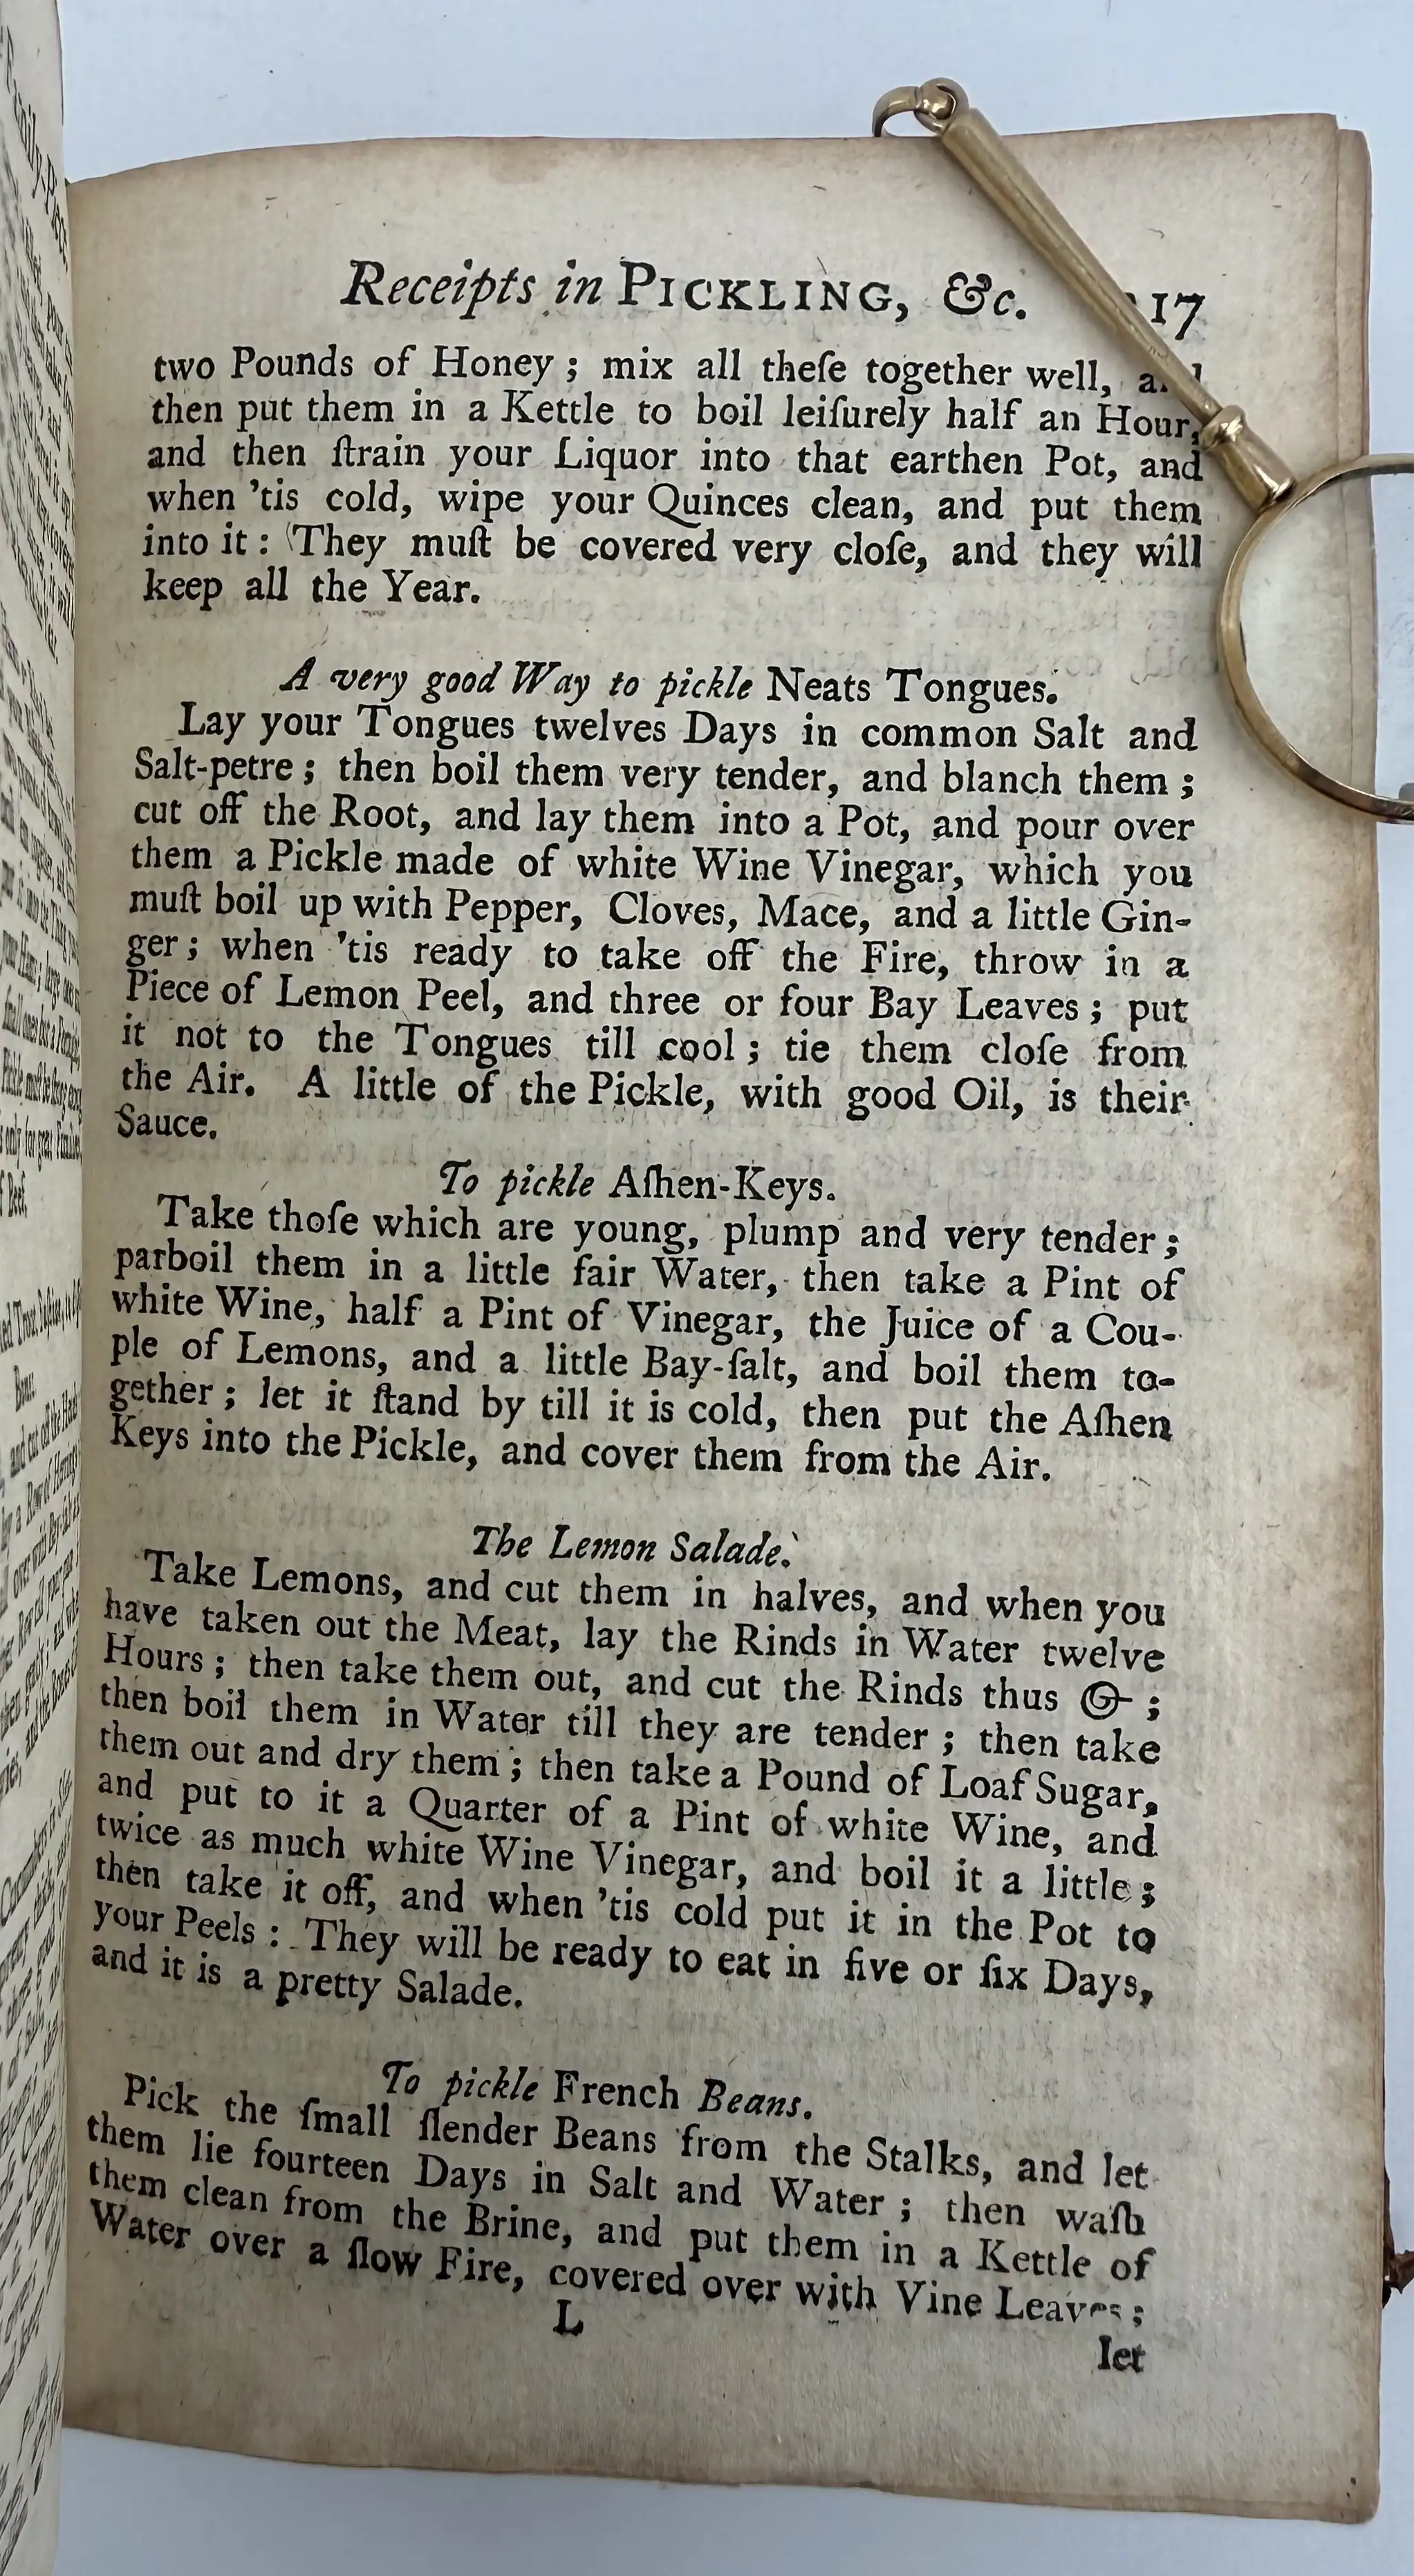 Receipts in PICKLING, &c. 17
two Pounds of Honey ; mix all theſe together well,
then put them in a Kettle to boil leiſurely half an Hour,
and then ſtrain your Liquor into that earthen Pot, and
when 'tis cold, wipe your Quinces clean, and put them
into it : They muſt be covered very cloſe, and they will
keep all the Year.
A very good Way to pickle Neats Tongues.
Lay your Tongues twelves Days in common Salt and
Salt-petre ; then boil them very tender, and blanch them ;
cut off the Root, and lay them into a Pot, and pour over
them a Pickle made of white Wine Vinegar, which you
muſt boil up with Pepper, Cloves, Mace, and a little Gin-
ger ; when 'tis ready to take off the Fire, throw in a
Piece of Lemon Peel, and three or four Bay Leaves ; put
it not to the Tongues till cool ; tie them cloſe from
the Air. A little of the Pickle, with good Oil, is their
Sauce.
To pickle Aſhen-Keys.
Take thoſe which are young, plump and very tender ;
parboil them in a little fair Water, then take a Pint of
white Wine, half a Pint of Vinegar, the Juice of a Cou-
ple of Lemons, and a little Bay-ſalt, and boil them to-
gether ; let it ſtand by till it is cold, then put the Aſhen
Keys into the Pickle, and cover them from the Air.
The Lemon Salade.
Take Lemons, and cut them in halves, and when you
have taken out the Meat, lay the Rinds in Water twelve
Hours ; then take them out, and cut the Rinds thus ;
then boil them in Water till they are tender ; then take
them out and dry them ; then take a Pound of Loaf Sugar,
and put to it a Quarter of a Pint of white Wine, and
twice as much white Wine Vinegar, and boil it a little ;
then take it off, and when 'tis cold put it in the Pot to
your Peels : They will be ready to eat in five or ſix Days,
and it is a pretty Salade.
To pickle French Beans.
Pick the ſmall ſlender Beans from the Stalks, and let
them lie fourteen Days in Salt and Water ; then waſh
them clean from the Brine, and put them in a Kettle of
Water over a ſlow Fire, covered over with Vine Leaves ;
L
let